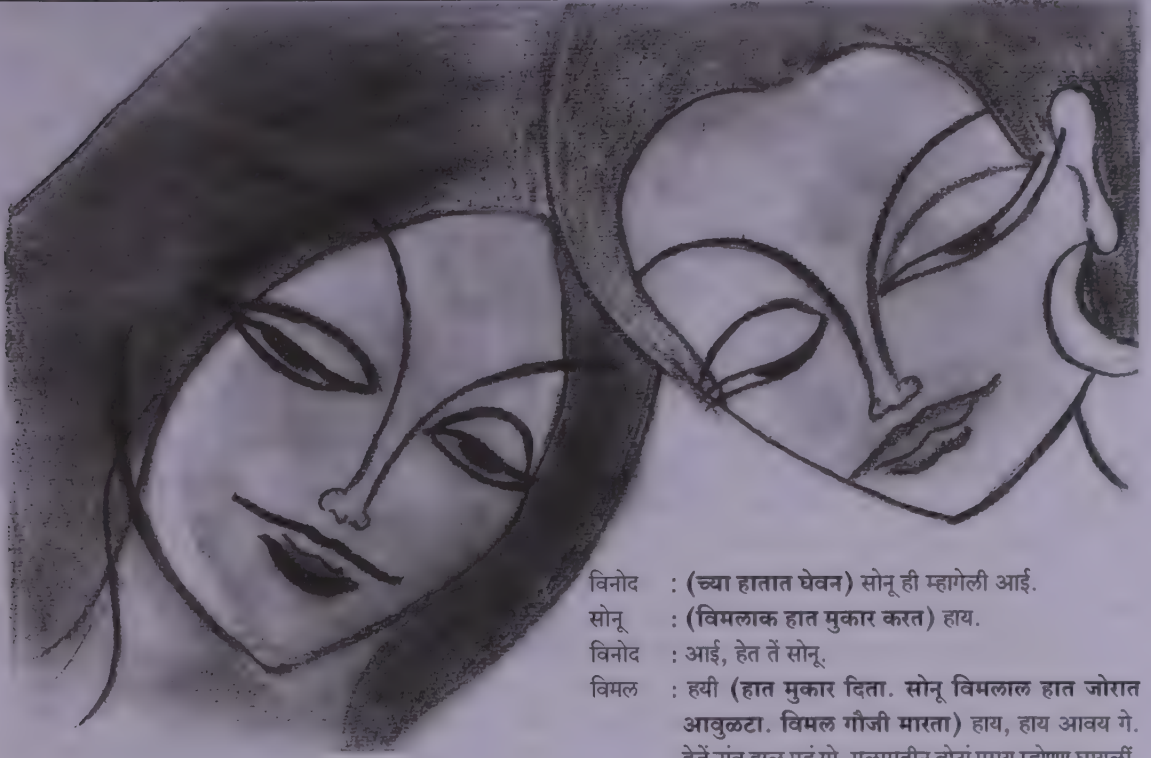 विनोद : (च्या हातात घेवन) सोनू ही म्हागेली आई.
सोनू : (विमलाक हात मुकार करत) हाय.
विनोद : आई, हेत तें सोनू.
विमल : हयी (हात मुकार दिता. सोनू विमलाल हात जोरात
आवुळटा. विमल गौजी मारता) हाय, हाय आवय गे.